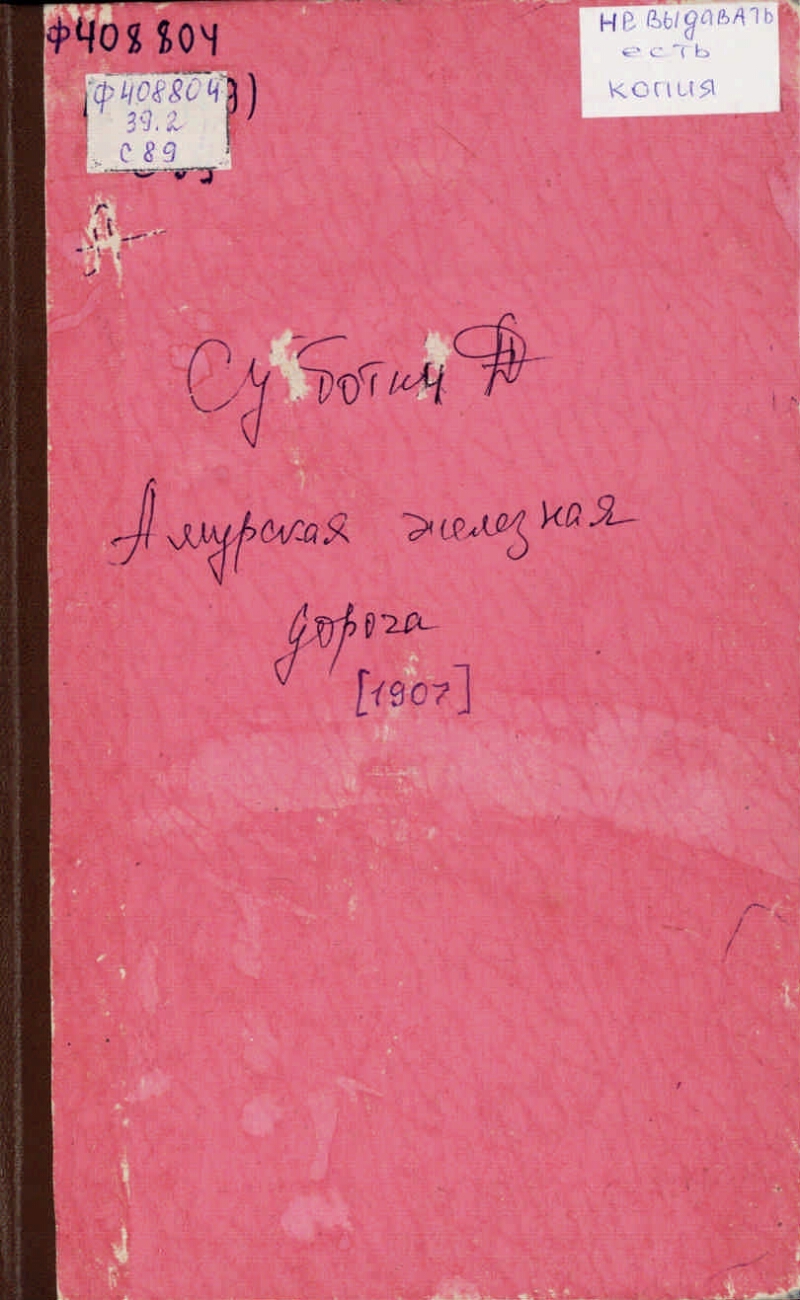 Ф408804
НЕ ВЫДАВАТЬ
есть
копия
Ф408804
39.2
С89
Субботин
Амурская железная
дорога
[1907]